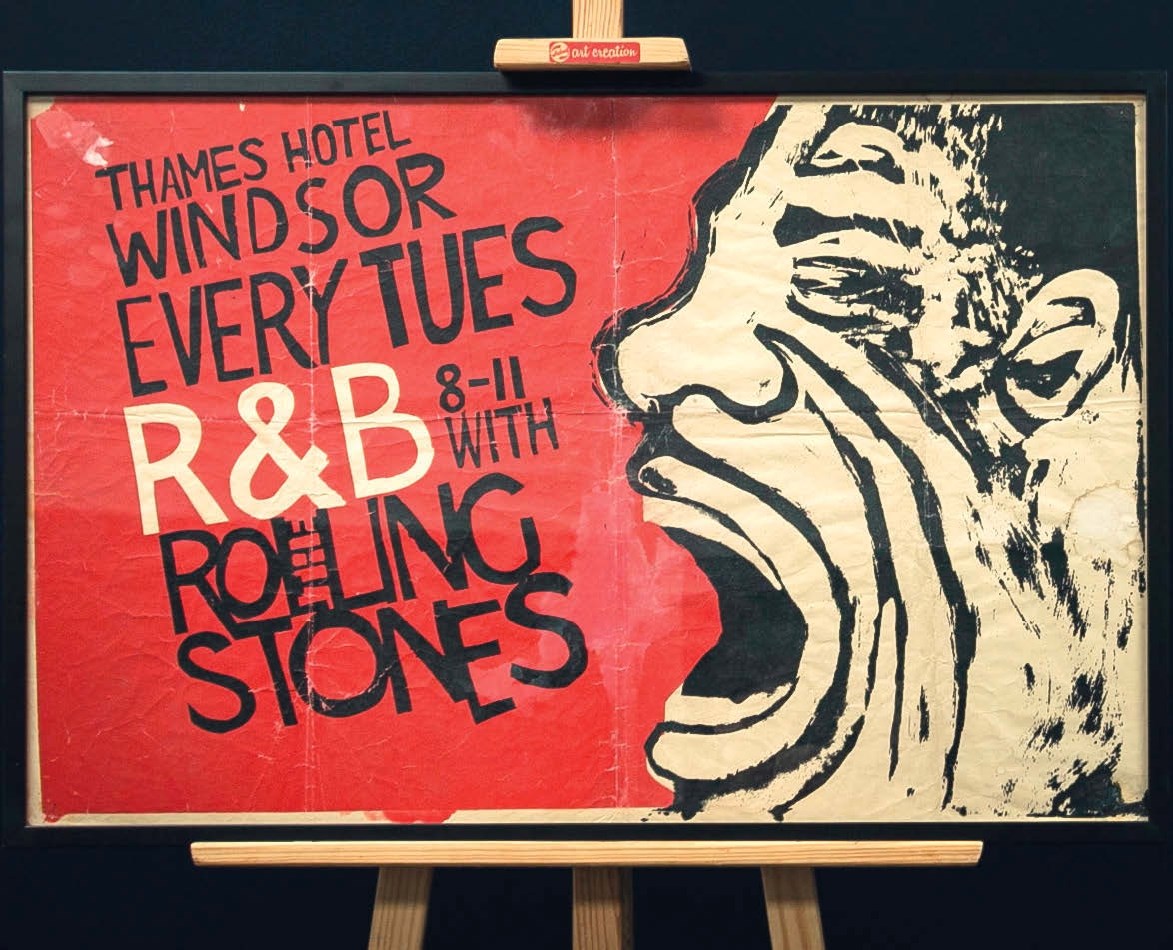 art creation
THAMES HOTEL
WINDSOR
EVERY TUES
R&B 8-11
WITH
THE
ROLLING
STONES